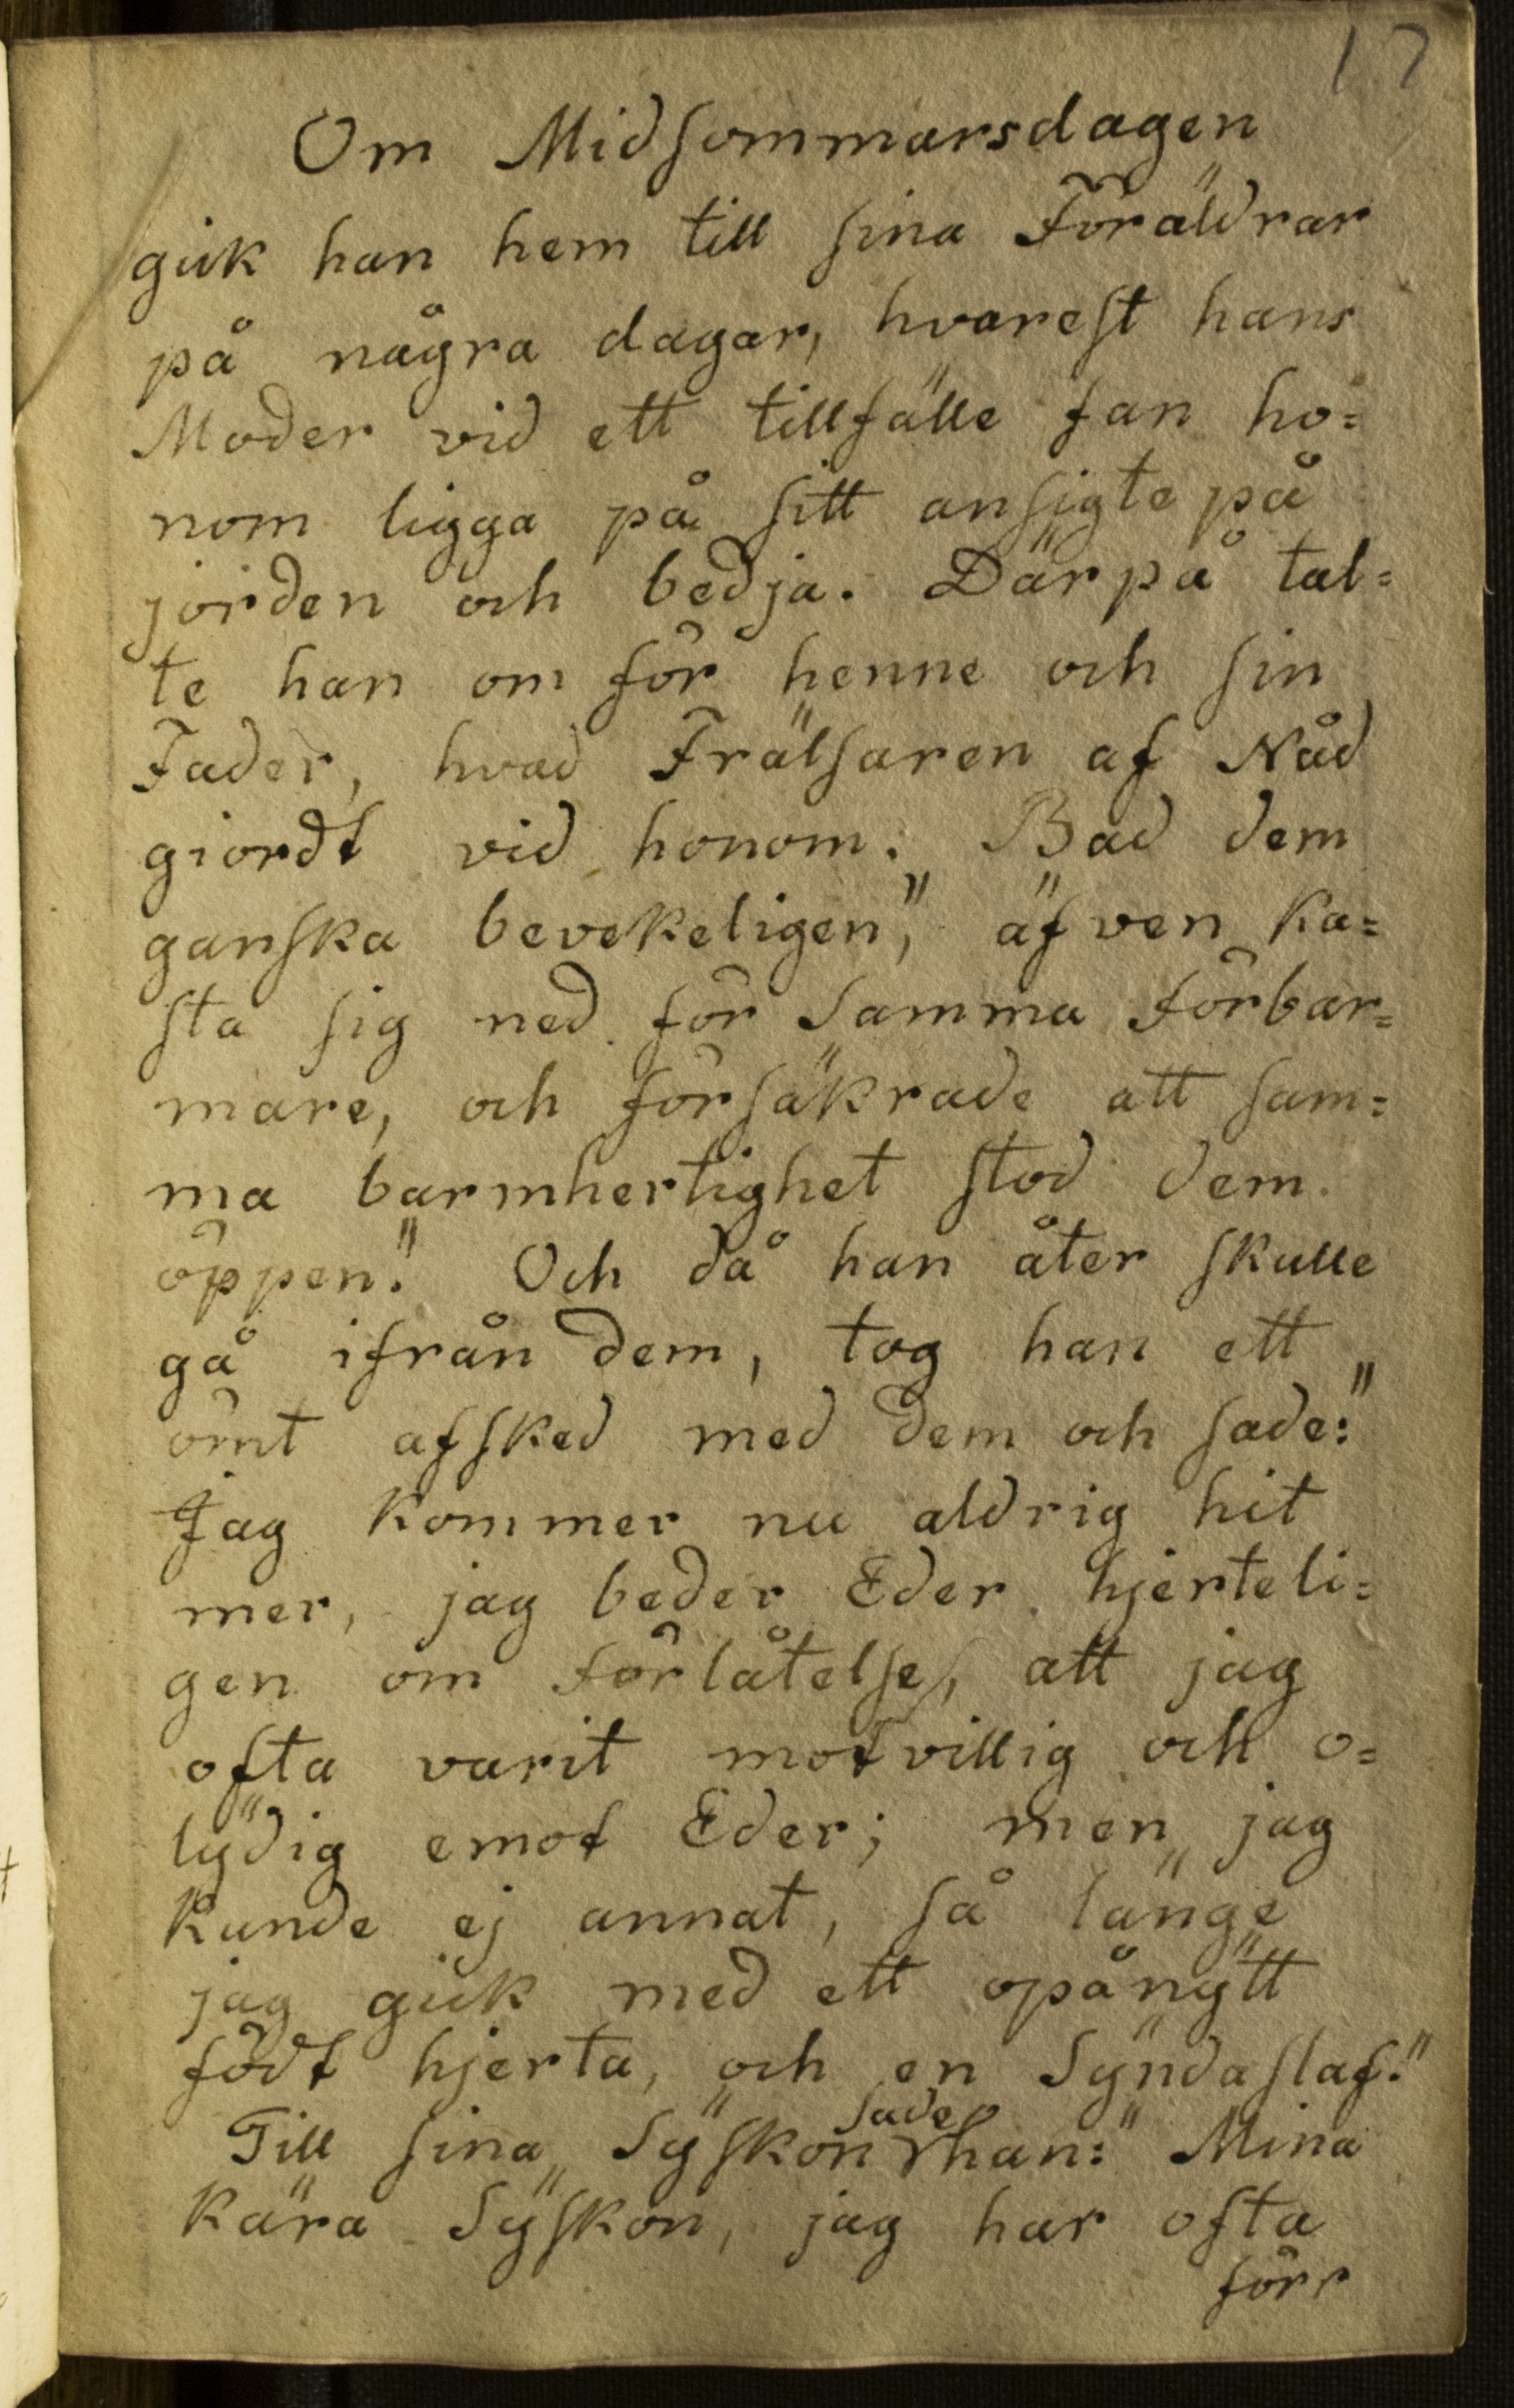 17
Om Midsommarsdagen
gick han hem till sina Föräldrar
på några dagar, hvarest hans
Moder vid ett tillfälle fan ho=
nom ligga på sitt ansigte på
jorden och bedja. Därpå tal=
te han om för henne och sin
Fader, hvad Frälsaren af Nåd
giordt vid honom; Bad dem
ganska bevekeligen," äfven ka=
sta sig ned för samma Förbar=
mare, och försäkrade att sam=
ma barmhertighet stod dem
öppen." Och då han åter skulle
gå ifrån dem, tog han ett
ömt afsked med dem och sade:"
Jag kommer nu aldrig hit
mer, jag beder Eder hjerteli=
gen om förlåtelse, att jag
ofta varit motvillig och o=
lydig emot Eder; men jag
kunde ej annat, så länge
jag gick med ett opånytt
födt hjerta, och en Syndaslaf."
Till sina Syskon sade han:" Mina
kära Syskon, jag har ofta
förr